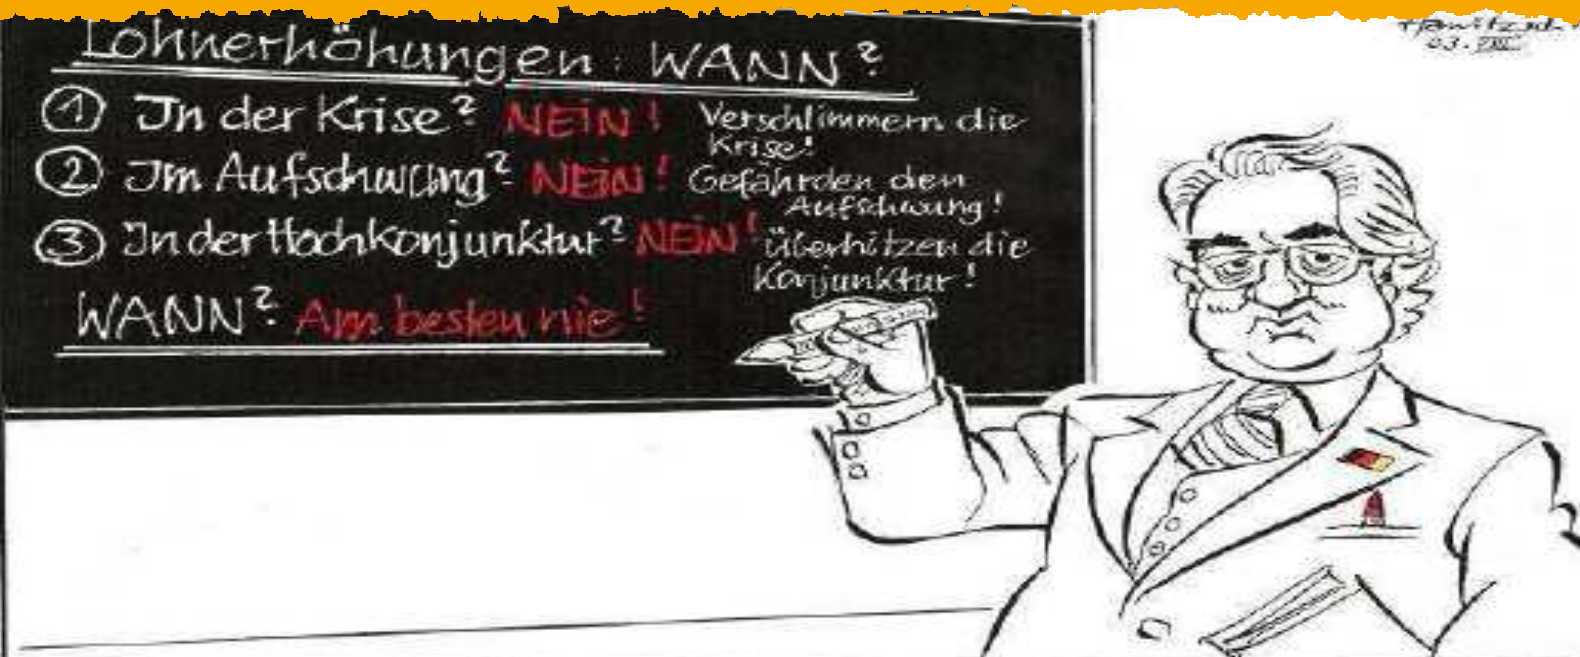 Lohnerhöhungen: WANN?
① In der Krise? NEIN! Verschlimmern die
Krise!
② Im Aufschwung? NEIN! Gefährden den
Aufschwung!
③ In der Hochkonjunktur? NEIN! überhitzen die
Konjunktur!
WANN? Am besten nie!